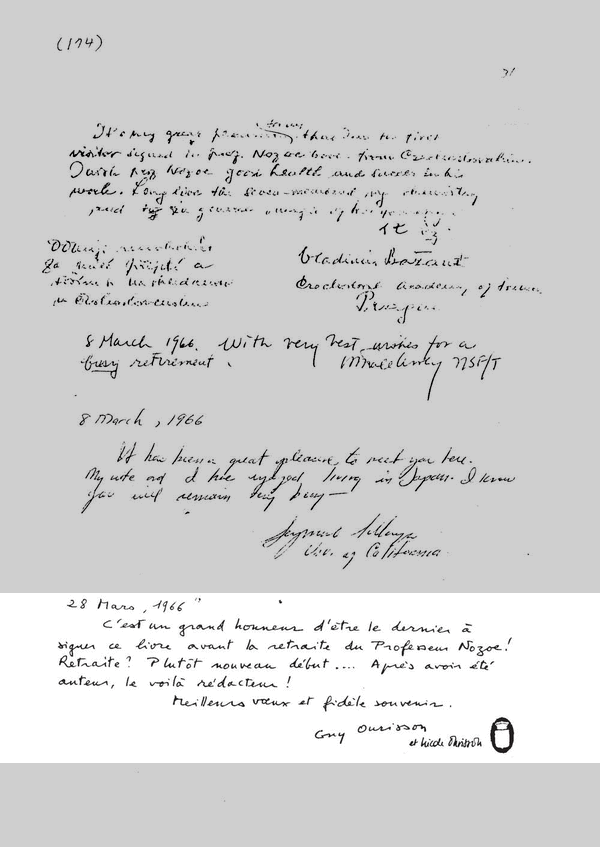 (174)
31
It's my great that I'm the first
visitor signed in prof. Nozoe book from Czechoslovakia.
I wish prof. Nozoe good health and succes in his
work. Long live the seven-membered ring chemistry
and
Vladimir Bažant
Czechoslovak Academy of
Prague
Děkuji
za milé přijetí a
v Československu
8 March 1966. With very best wishes for a
busy retirement. NSF/T
8 March, 1966
It has been a great pleasure to meet you here.
My wife and I have enjoyed living in Japan. I know
you will remain very busy—
Univ. of California
28 Mars, 1966"
C'est un grand honneur d'être le dernier à
signer ce livre avant la retraite du Professeur Nozoe!
Retraite? Plutôt nouveau début .... Après avoir été
auteur, le voilà rédacteur!
Meilleurs vœux et fidèle souvenir.
Guy Ourisson
et Nicole Ourisson